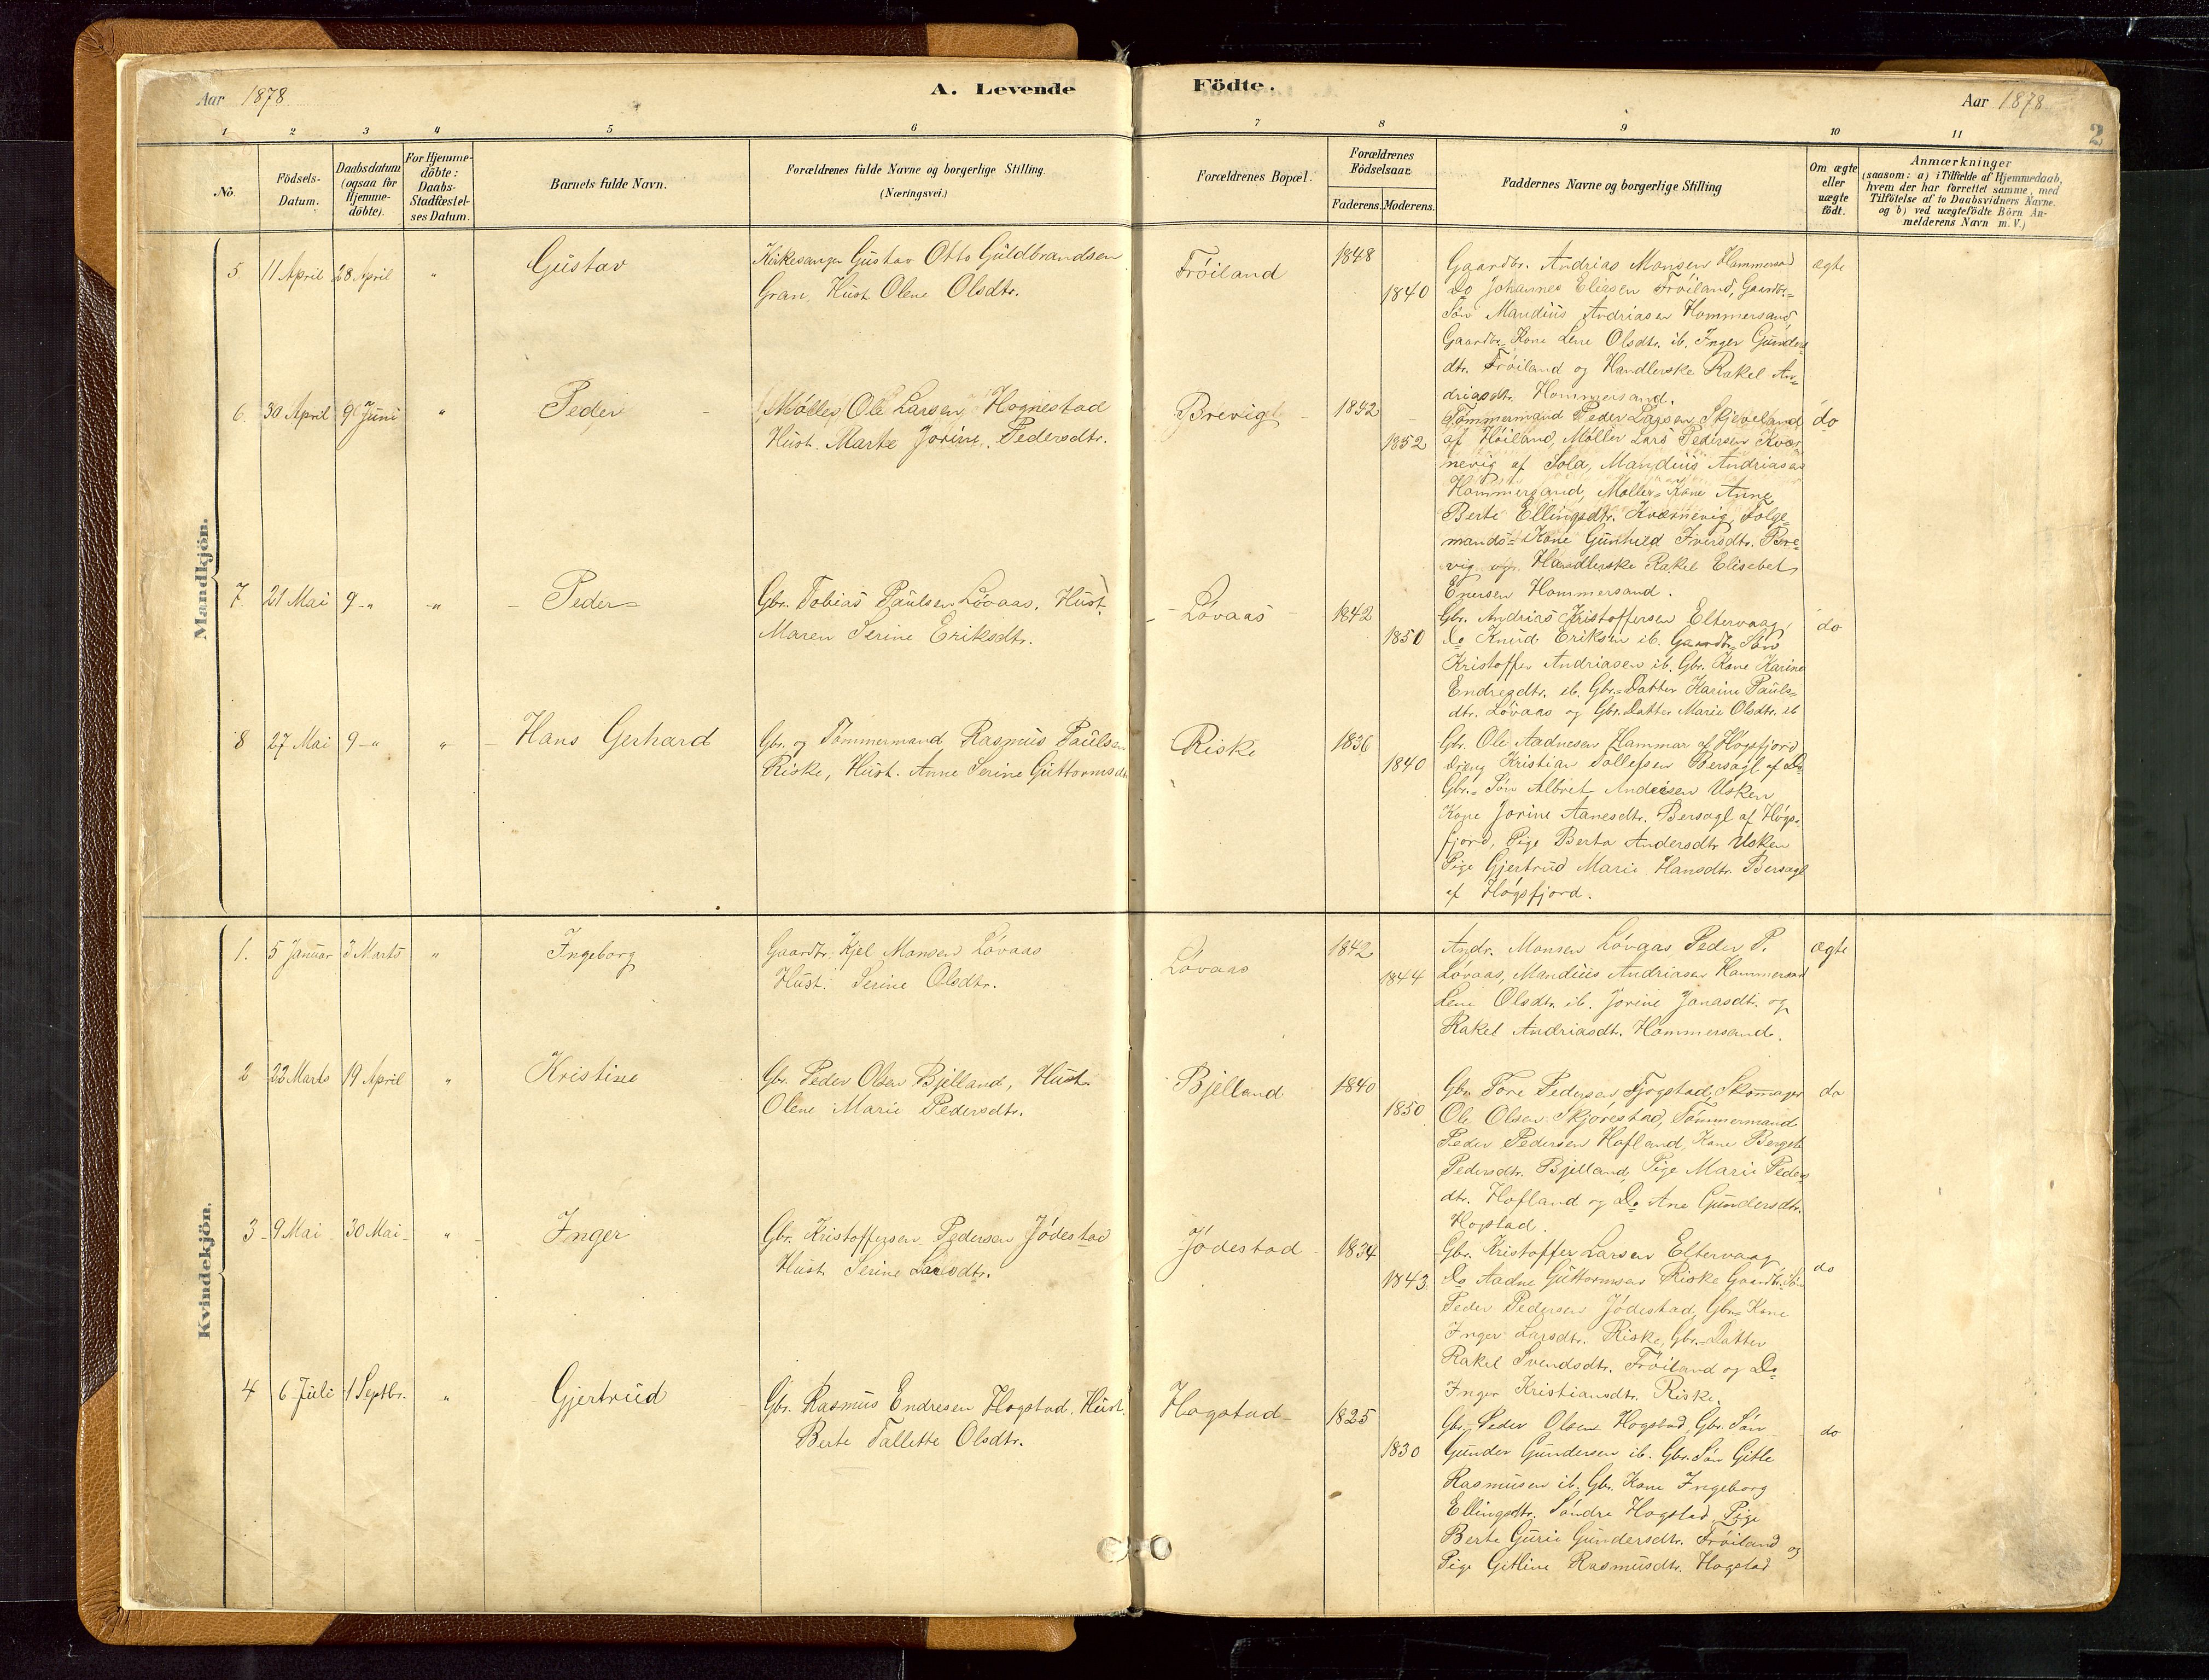 Aar 1878
A. Levende Födte.
Aar 1878
2
1 2 3 4 5 6 7 8 9 10 11
No.
Födsels-
Datum.
Daabsdatum
(ogsaa for
Hjemme-
döbte).
For Hjemme-
döbte:
Daabs-
Stadfæstel-
ses Datum.
Barnets fulde Navn.
Forældrenes fulde Navne og borgerlige Stilling.
(Næringsvei.)
Forældrenes Bopæl.
Forældrenes
Födselsaar.
Faderens. Moderens.
Faddernes Navne og borgerlige Stilling
Om ægte
eller
uægte
födt.
Anmærkninger
(saasom: a) i Tilfælde af Hjemmedaab,
hvem der har forrettet samme, med
Tilföielse af to Daabsvidners Navne.
og b) ved uægtefödte Börn An-
melderens Navn m. V.)
Mandkjön.
5 11 April 28 April " Gustav
Kirkesanger Gustav Otto Guldbrandsen
Gran, Hust. Olene Olsdtr.
Fröiland 1848 1840
Gaardbr. Andrias Monsen Hammersand
Do Johannes Eliasen Fröiland, Gaardbr.=
Sön Mandius Andriasen Hommersand
Gaardbr. Kone Lene Olsdtr. ib. Inger Gunders
dtr. Fröiland og Handlerske Rakel An=
driasdtr. Hommersand.
ægte
6. 30 April 9 Juni " Peder
Möller Ole Larsen, Hognestad
Hust. Marte Jorine Pedersdtr.
Brevig 1852 1852
Tömmermand Peder Larsen Skjeveland
af Höiland, Möller Lars Pedersen Kvær
nevig af Sola, Mandius Andriasen
Hommersand, Möller=Kone Anne
Berte Ellingsdtr. Kværnevig, Folge=
mands=Kone Gunhild Iversdtr. Bre=
vig og Handlerske Rakel Elisebet
Enersen Hommersand.
do
7. 21 Mai 9 -"- -"- Peder
Gbr. Tobias Paulsen Lövaas, Hust.
Maren Serine Eriksdtr.
Lövaas 1842 1850
Gbr. Andrias Kristoffersen Eltervaag,
Do Knud Eriksen ib. Gaardbr. Sön
Kristoffer Andriasen ib. Gbr. Kone Karine
Endresdtr. ib. Gbr.=Datter Karine Pauls=
dtr. Lövaas og Gbr. Datter Marie Olsdtr. ib
do
8 27 Mai 9 -"- " Hans Gerhard
Gbr. og Tömmermand Rasmus Paulsen
Riske, Hust. Anne Serine Guttormsdtr
Riske 1836 1840
Gbr. Ole Aadnesen Hammar af Högsfjord
Dreng Kristian Tollefsen Bersagl af Do
Gbr.= Sön Albret Andersen Usken
Kone Jorine Aanesdtr. Bersagl af Högs=
fjord, Pige Berta Andersdtr Usken
Pige Gjertrud Marie Hansdtr. Bersagl
af Högsfjord.
Kvindekjön.
1. 5 Januar 3 Marts " Ingeborg
Gaardbr. Kjel Monsen Lövaas
Hust. Serine Olsdtr.
Lövaas 1842 1844
Andr. Monsen Lövaas Peder P.
Lövaas, Mandius Andriasen Hammersand
Lene Olsdtr. ib. Jorine Jonasdtr. og
Rakel Andriasdt. Hommersand.
ægte
2 22 Marts 19 April " Kristine
Gbr. Peder Olsen Bjelland, Hust.
Olene Marie Pedersdtr.
Bjelland 1840 1850
Gbr. Tore Pedersen Fjogstad, Skomager
Ole Olsen Skjörestad, Tömmermand
Peder Pedersen Hofland, Kone Bergete
Pedersdtr. Bjelland, Pige Marie Peders
dtr. Hofland og Do Ane Gundersdtr.
Hogstad.
do
3 9 Mai 30 Mai " Inger
Gbr. Kristoffersen Pedersen Jödestad
Hust Serine Larsdtr.
Jödestad 1834 1843
Gbr. Kristoffer Larsen Eltervaag
Do Aadne Guttormsen Riske Gaardbr. Sön
Peder Pedersen Jödestad, Gbr= Kone
Inger Larsdtr. Riske, Gbr.=Datter
Rakel Svendsdtr. Fröiland og Do
Inger Kristiansdtr. Riske.
do
4 6 Juli 1 Septbr. " Gjertrud
Gbr. Rasmus Endresen Hogstad, Hust.
Berte Tallette Olsdtr.
Hogstad 1825 1830
Gbr. Peder Olsen Hogstad, Gbr. Sön
Gunder Gundersen ib. Gbr. Sön Gitle
Rasmusen ib. Gbr. Kone Ingeborg
Ellingsdtr. Söndre Hogstad, Pige
Berte Gurie Gundersdtr. Fröiland og
Pige Gitline Rasmusdtr. Hogstad
do